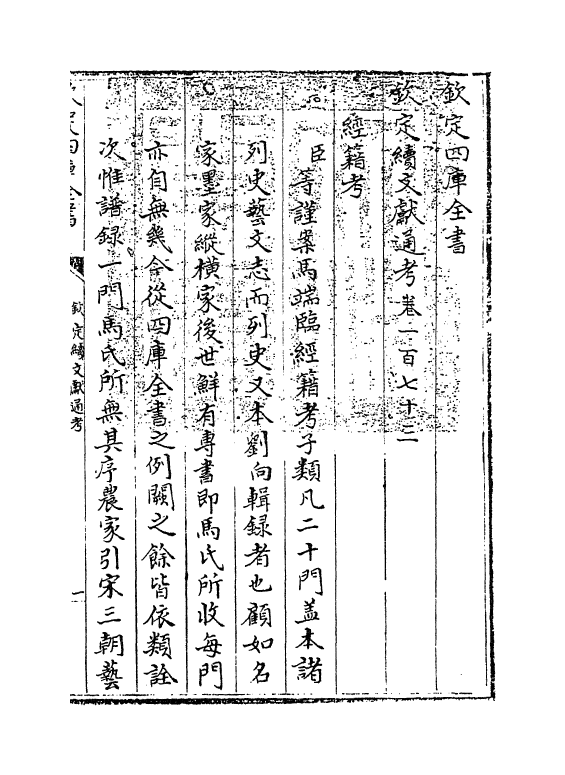 欽定四庫全書
欽定續文獻通考卷一百七十三
經籍考
臣等謹案馬端臨經籍考子類凡二十門蓋本諸
列史藝文志而列史又本劉向輯録者也顧如名
家墨家縱橫家後世鮮有專書即馬氏所收每門
亦自無幾今從四庫全書之例闕之餘皆依類詮
次惟譜録一門馬氏所無其序農家引宋三朝藝
欽定四庫全書
欽定續文獻通考
一